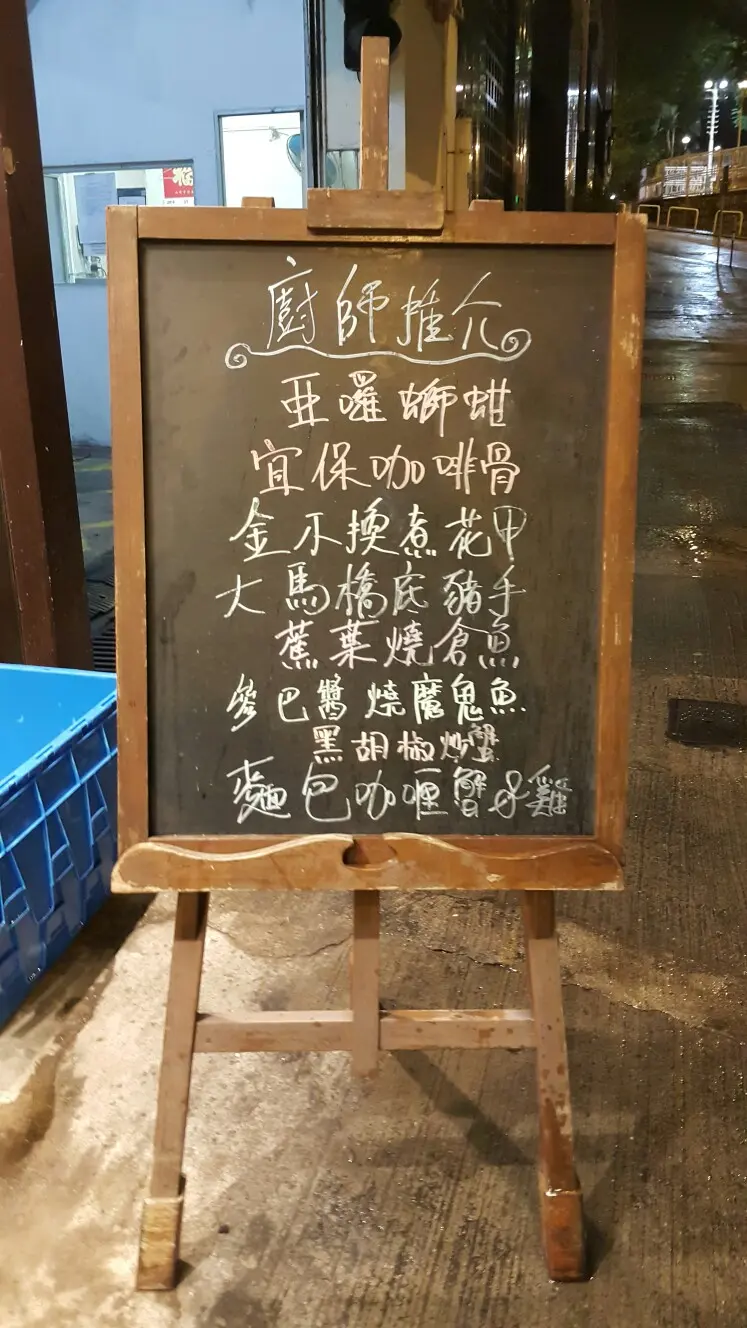 福
廚師推介
亜囉螄蚶
宜保咖啡骨
金不換煮花甲
大馬橋底豬手
蕉葉燒倉魚
參巴醬燒魔鬼魚
黑胡椒炒蟹
麵包咖喱蟹&雞